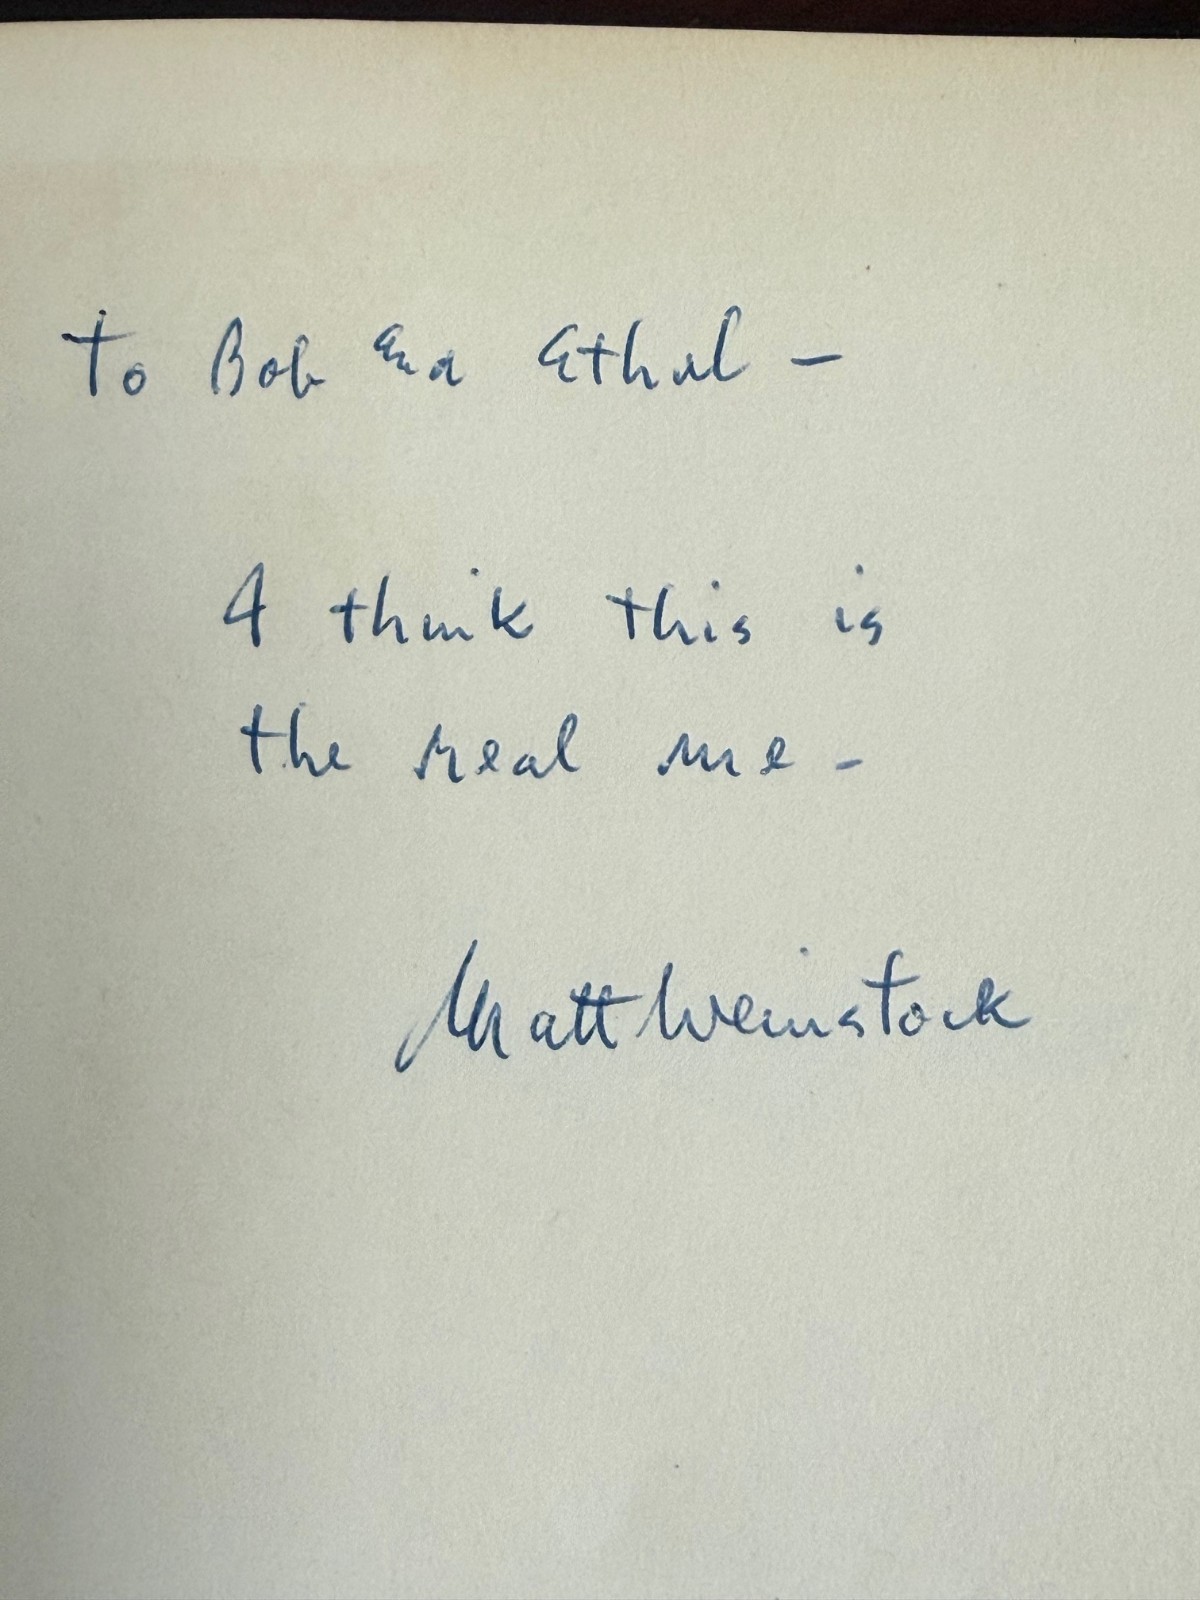 To Bob and Ethel –
I think this is
the real me –
Matt Weinstock